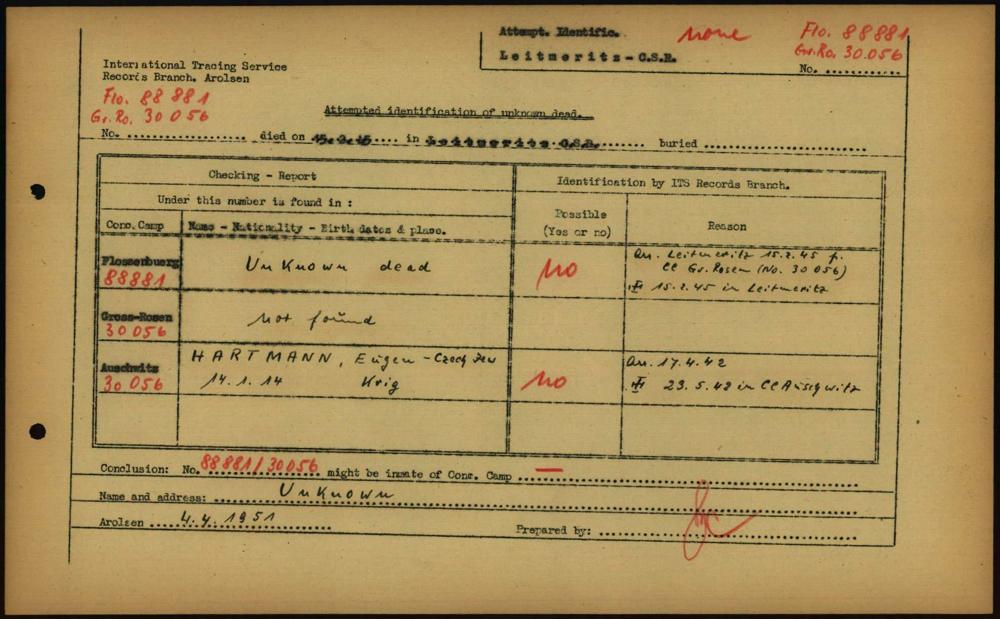 Attempt. Identific. none Flo. 88881
Leitmeritz - C.S.R. Gr. Ro. 30.056
No. ............
International Tracing Service
Records Branch. Arolsen
Flo. 88 881
Gr. Ro. 30 056
Attempted identification of unknown dead.
No. ................. died on 15.2.45.... in Leitmeritz C.S.R........ buried .......................
Checking - Report Identification by ITS Records Branch.
Under this number is found in :
Conc. Camp Name - Nationality - Birth dates & place. Possible (Yes or no) Reason
Flossenbuerg Unknown dead no arr. Leitmeritz 15.2.45 f.
88881 CC Gr. Rosen (No. 30 056)
15.2.45 in Leitmeritz
Gross-Rosen not found
30 056
Auschwitz HARTMANN, Eugen - Czech Jew no arr. 17.4.42
30 056 14.1.14 Krig 23.5.42 in CC Auschwitz
Conclusion: No. 88881/30056 might be inmate of Conc. Camp —
Name and address: Unknown
Arolsen 4.4.1951 Prepared by: